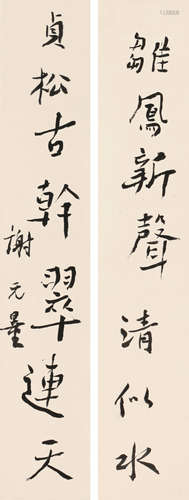 雛鳳新聲清似水
貞松古幹翠連天
謝无量